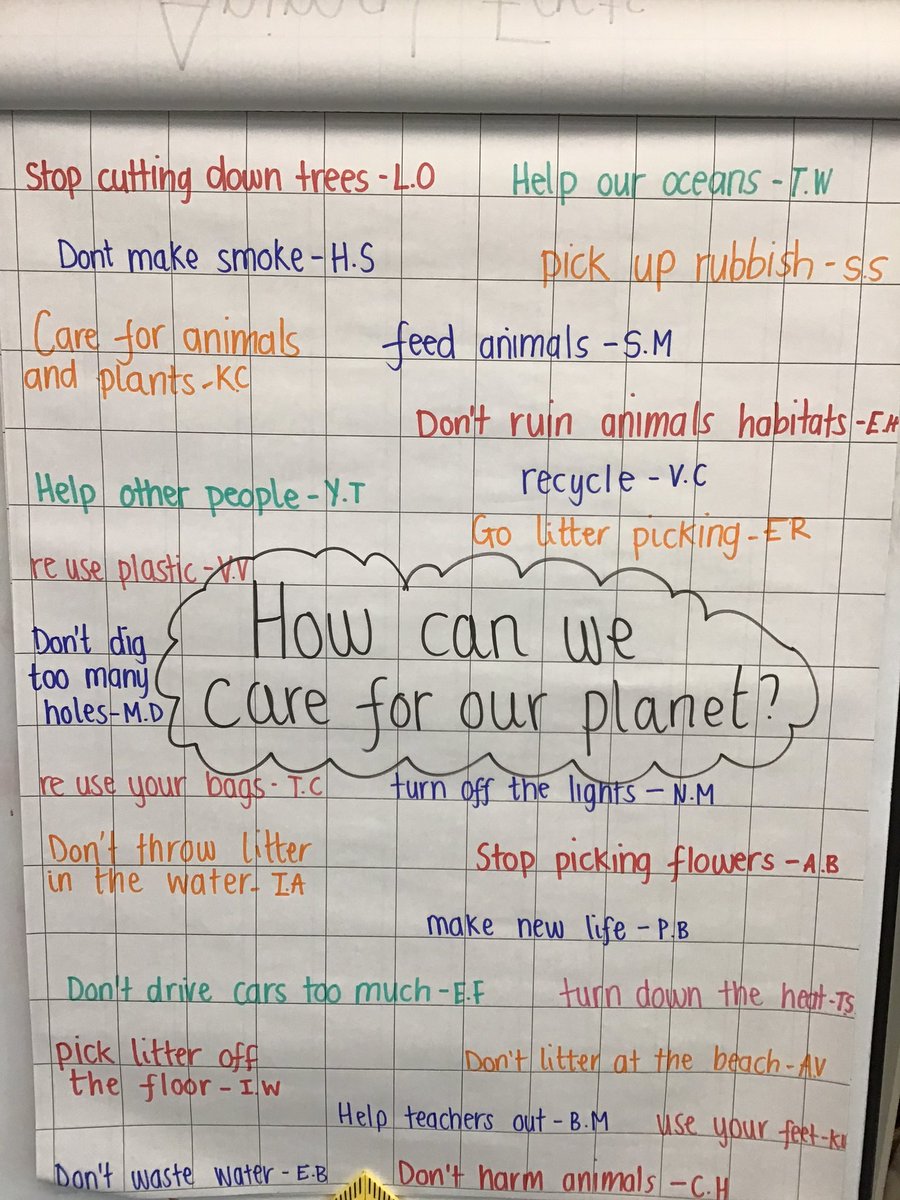 Stop cutting down trees - L.O
Help our oceans - T.W
Dont make smoke - H.S
pick up rubbish - S.S
Care for animals
and plants - KC
feed animals - S.M
Don't ruin animals habitats - E.H
Help other people - Y.T
recycle - V.C
Go litter picking - ER
re use plastic - V.V
How can we
care for our planet?
Don't dig
too many
holes - M.D
re use your bags - T.C
turn off the lights - N.M
Don't throw litter
in the water - I.A
Stop picking flowers - A.B
make new life - P.B
Don't drive cars too much - E.F
turn down the heat - TS
pick litter off
the floor - I.W
Don't litter at the beach - AV
Help teachers out - B.M
use your feet -
Don't waste water - E.B
Don't harm animals - C.H